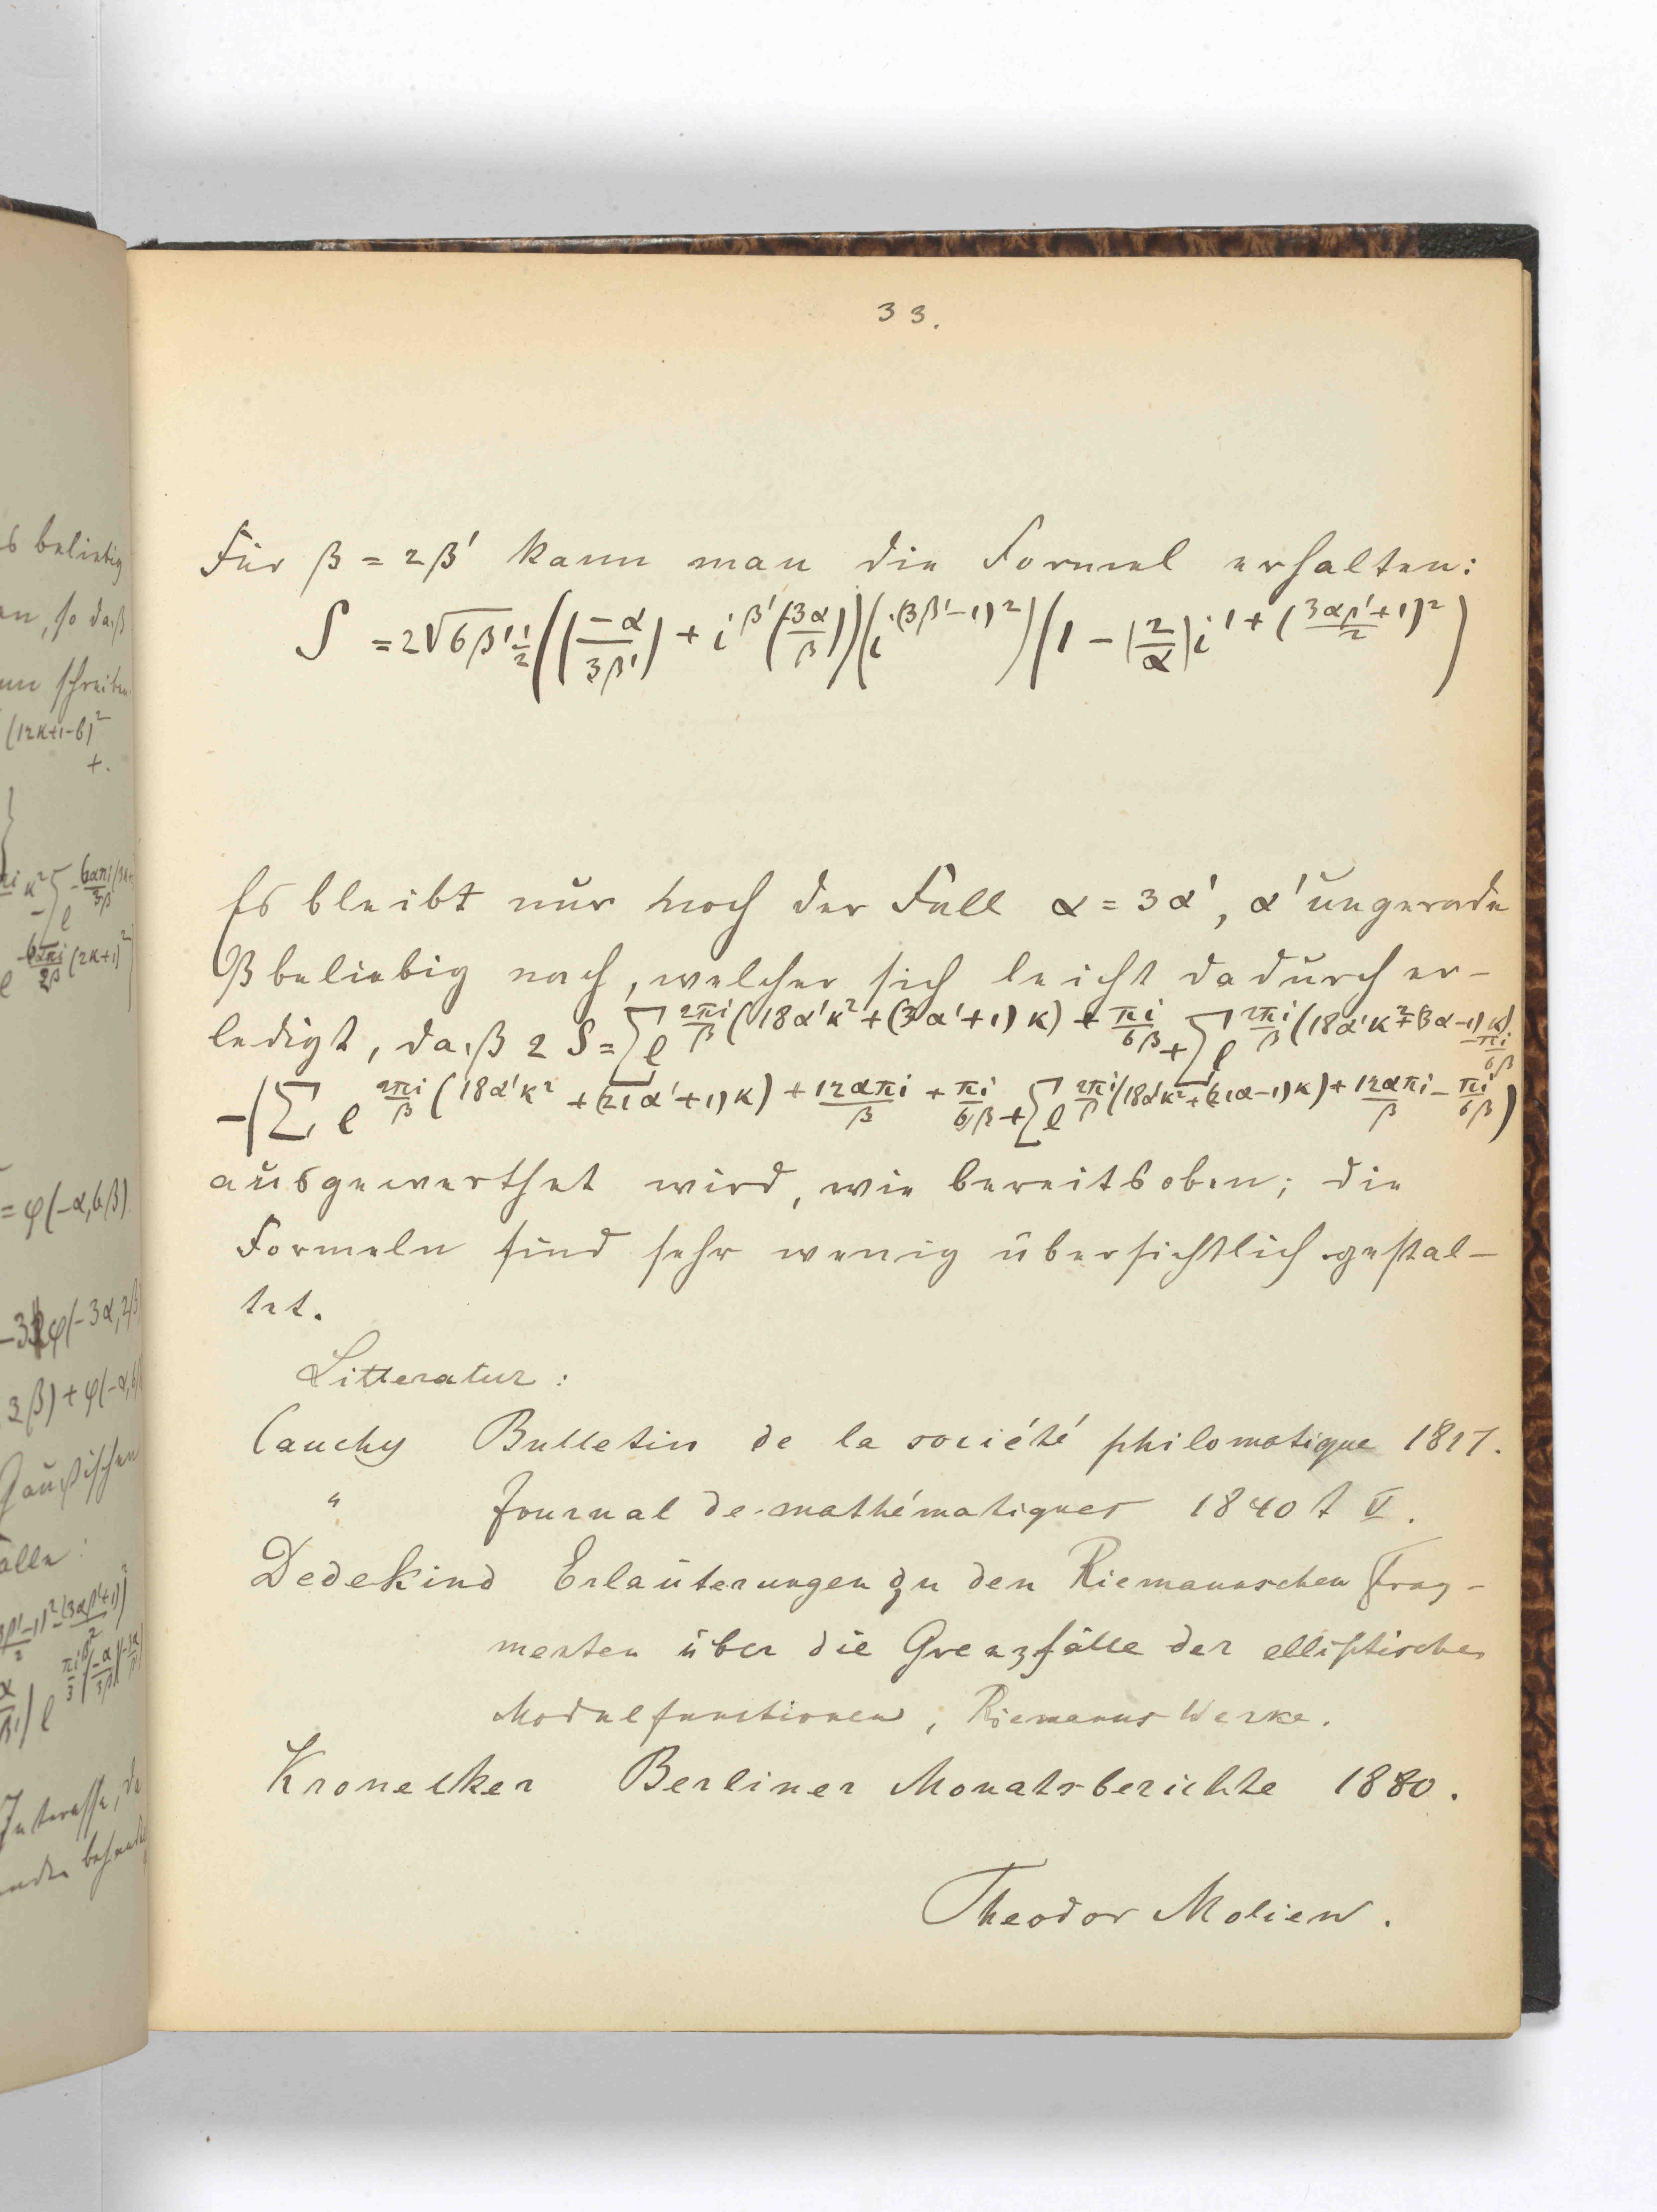 33.
Für β = 2β' kann man die Formel erhalten:
S = 2√6β' i/2 ((−α/3β') + i^β' (−3α/β)) (i^(3β'−1)²) (1 − (2/α) i^1 + (3αβ'+1/2)²)
Es bleibt nur noch der Fall α = 3α', α' ungerade
β beliebig nach, welcher sich leicht dadurch er-
ledigt, daß 2 S = ∑ e^ 2πi/β (18α'κ² + (3α'+1) κ) + πi/6β + ∑ e^ 2πi/β (18α'κ² + (3α−1) κ) − πi/6β
−(∑ e^ 2πi/β (18α'κ² + (21α'+1) κ) + 12απi/β + πi/6β + ∑ e^ 2πi/β (18α'κ² + (21α−1) κ) + 12απi/β − πi/6β)
ausgewerthet wird, wie bereits oben; die
Formeln sind sehr wenig übersichtlich gestal-
tet.
Litteratur:
Cauchy Bulletin de la société philomatique 1817.
" Journal de mathématiques 1840 t V.
Dedekind Erläuterungen zu den Riemannschen Frag-
menten über die Grenzfälle der elliptischen
Modulfunctionen, Riemanns Werke.
Kronecker Berliner Monatsberichte 1880.
Theodor Molien.